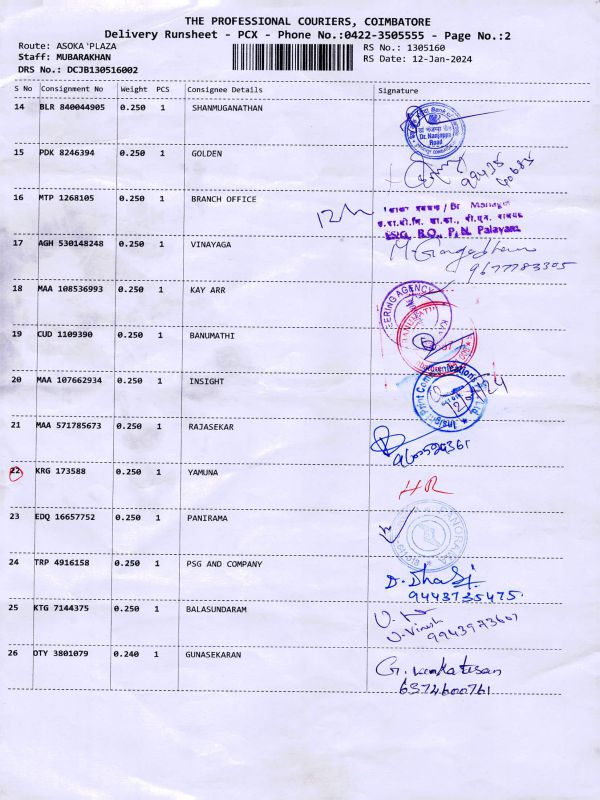 THE PROFESSIONAL COURIERS, COIMBATORE
Delivery Runsheet - PCX - Phone No.:0422-3505555 - Page No.:2
Route: ASOKA PLAZA
RS No.: 1305160
Staff: MUBARAKHAN
RS Date: 12-Jan-2024
DRS No.: DCJB130516002
S No Consignment No Weight PCS Consignee Details Signature
14 BLR 840044905 0.250 1 SHANMUGANATHAN
Dr. Nanjappa
Road
15 PDK 8246394 0.250 1 GOLDEN
16 MTP 1268105 0.250 1 BRANCH OFFICE
/ Br Manager
P. N. Palayam
17 AGH 530148248 0.250 1 VINAYAGA
9677783305
18 MAA 108536993 0.250 1 KAY ARR
19 CUD 1109390 0.250 1 BANUMATHI
20 MAA 107662934 0.250 1 INSIGHT
21 MAA 571785673 0.250 1 RAJASEKAR
22 KRG 173588 0.250 1 YAMUNA
HR
23 EDQ 16657752 0.250 1 PANIRAMA
24 TRP 4916158 0.250 1 PSG AND COMPANY
9443735475
25 KTG 7144375 0.250 1 BALASUNDARAM
26 DTY 3801079 0.240 1 GUNASEKARAN
G. Venkatesan
6374600761